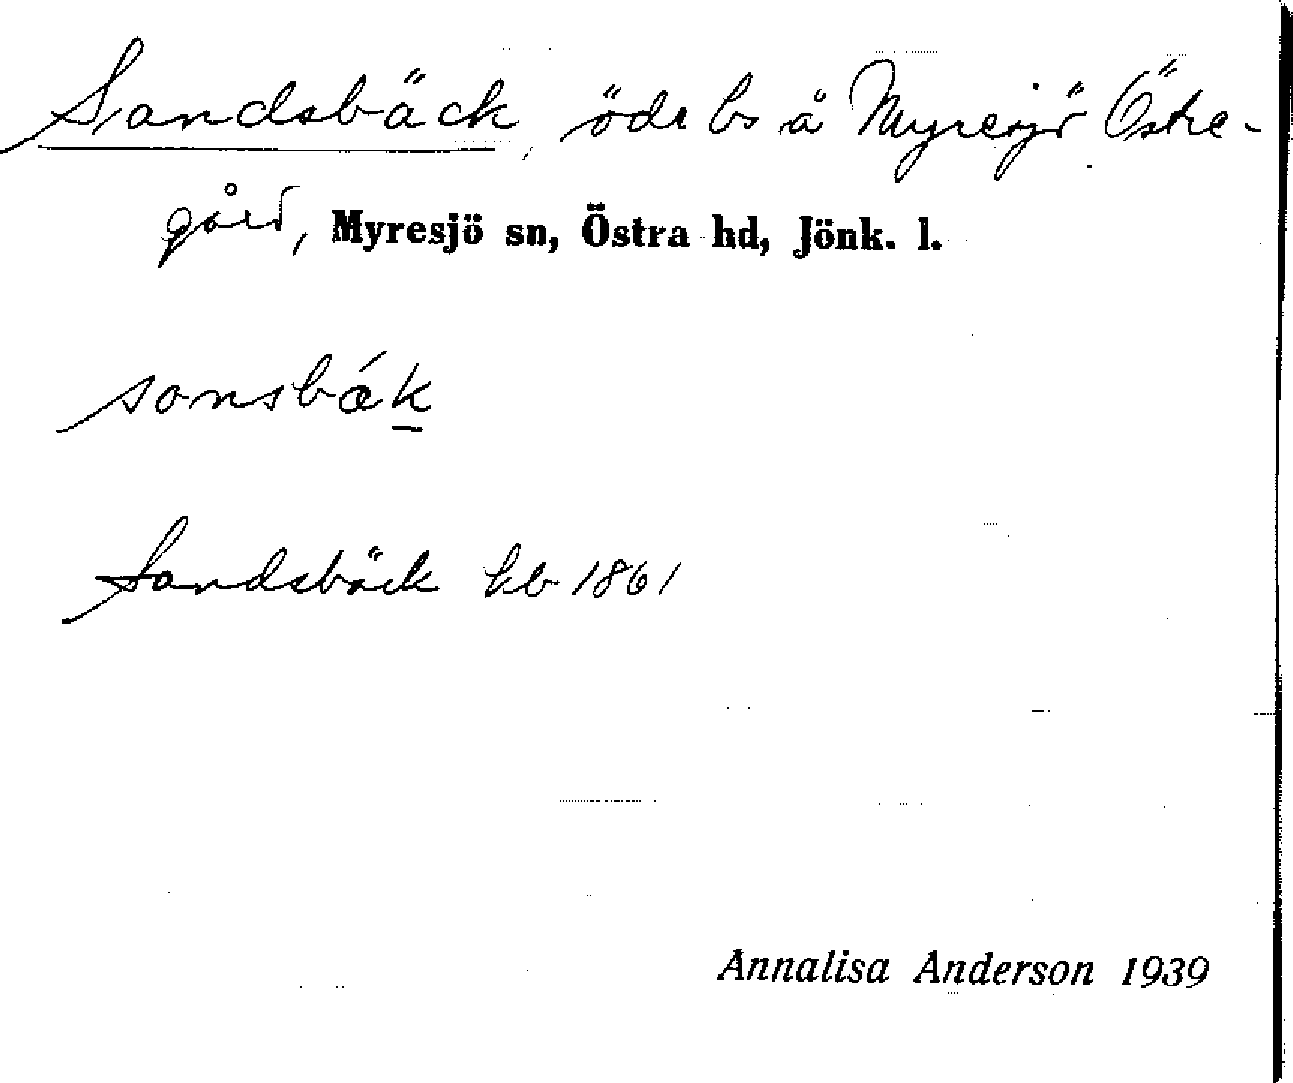 Sandsbäck, öde bs å Myresjö Östre-
gård, Myresjö sn, Östra hd, Jönk. l.
sansbák
Sandsbäck hb 1861
Annalisa Anderson 1939